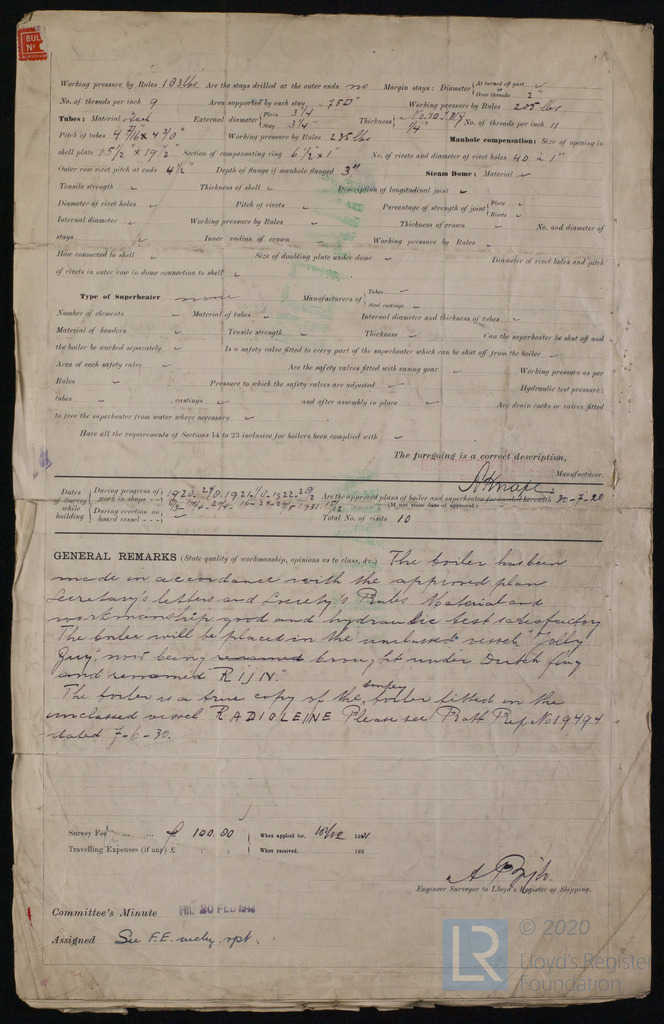 BUL
Nº
Working pressure by Rules 183 lbs. Are the stays drilled at the outer ends no Margin stays: Diameter { At turned off part, ✓ or Over threads 2"
No. of threads per inch 9 Area supported by each stay 75□" Working pressure by Rules 205 lbs
Tubes: Material Steel External diameter { Plain 3 1/4 Stay 3 1/4" Thickness { 1/4" No. of threads per inch 11
Pitch of tubes 4 7/16 x 4 3/8" Working pressure by Rules 235 lbs Manhole compensation: Size of opening in
shell plate 15 1/2" x 19 1/2" Section of compensating ring 6 1/2" x 1" No. of rivets and diameter of rivet holes 40 à 1"
Outer row rivet pitch at ends 4 1/2" Depth of flange if manhole flanged 3" Steam Dome: Material ✓
Tensile strength ✓ Thickness of shell ✓ Description of longitudinal joint ✓
Diameter of rivet holes ✓ Pitch of rivets ✓ Percentage of strength of joint { Plate ✓ Rivets ✓
Internal diameter ✓ Working pressure by Rules ✓ Thickness of crown ✓ No. and diameter of
stays ✓ Inner radius of crown ✓ Working pressure by Rules ✓
How connected to shell ✓ Size of doubling plate under dome ✓ Diameter of rivet holes and pitch
of rivets in outer row in dome connection to shell ✓
Type of Superheater none Manufacturers of { Tubes ✓ Steel castings ✓
Number of elements ✓ Material of tubes ✓ Internal diameter and thickness of tubes ✓
Material of headers ✓ Tensile strength ✓ Thickness ✓ Can the superheater be shut off and
the boiler be worked separately ✓ Is a safety valve fitted to every part of the superheater which can be shut off from the boiler ✓
Area of each safety valve ✓ Are the safety valves fitted with easing gear ✓ Working pressure as per
Rules ✓ Pressure to which the safety valves are adjusted ✓ Hydraulic test pressure:
tubes ✓ castings ✓ and after assembly in place ✓ Are drain cocks or valves fitted
to free the superheater from water where necessary ✓
Have all the requirements of Sections 14 to 23 inclusive for boilers been complied with ✓
The foregoing is a correct description,
Manufacturer.
Dates of Survey while building { During progress of work in shops - - During erection on board vessel - - - Are the approved plans of boiler and superheater forwarded herewith 30-7-20
(If not state date of approval.)
Total No. of visits 10
GENERAL REMARKS (State quality of workmanship, opinions as to class, &c.) The boiler has been
made in accordance with the approved plan
Secretary's letters and Society's Rules Material and
workmanship good and hydraulic test satisfactory
The boiler will be placed in the unclassed vessel "Jolly
Guy", now being renamed brought under Dutch flag
and renamed "RIJN."
The boiler is a true copy of the donkey boiler fitted in the
unclassed vessel RADIOLEINE Please see Rott Rep No 19494
dated 7-6-30.
Survey Fee ... ... £ 100.00 When applied for, 10/12 1931
Travelling Expenses (if any) £ : : When received, 192
Engineer Surveyor to Lloyd's Register of Shipping.
Committee's Minute FRI. 20 FEB 1948
Assigned See F.E. mchy rpt.
LR
© 2020
Lloyd's Register
Foundation